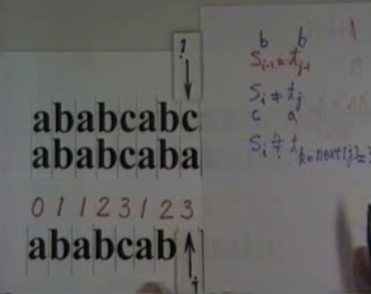 i
ababcabc
ababcaba
0 1 1 2 3 1 2 3
ababcab
j
b b
S i-1 = t j-1
S i ≠ t j
c a
S i ≟ t k=next[j]=3